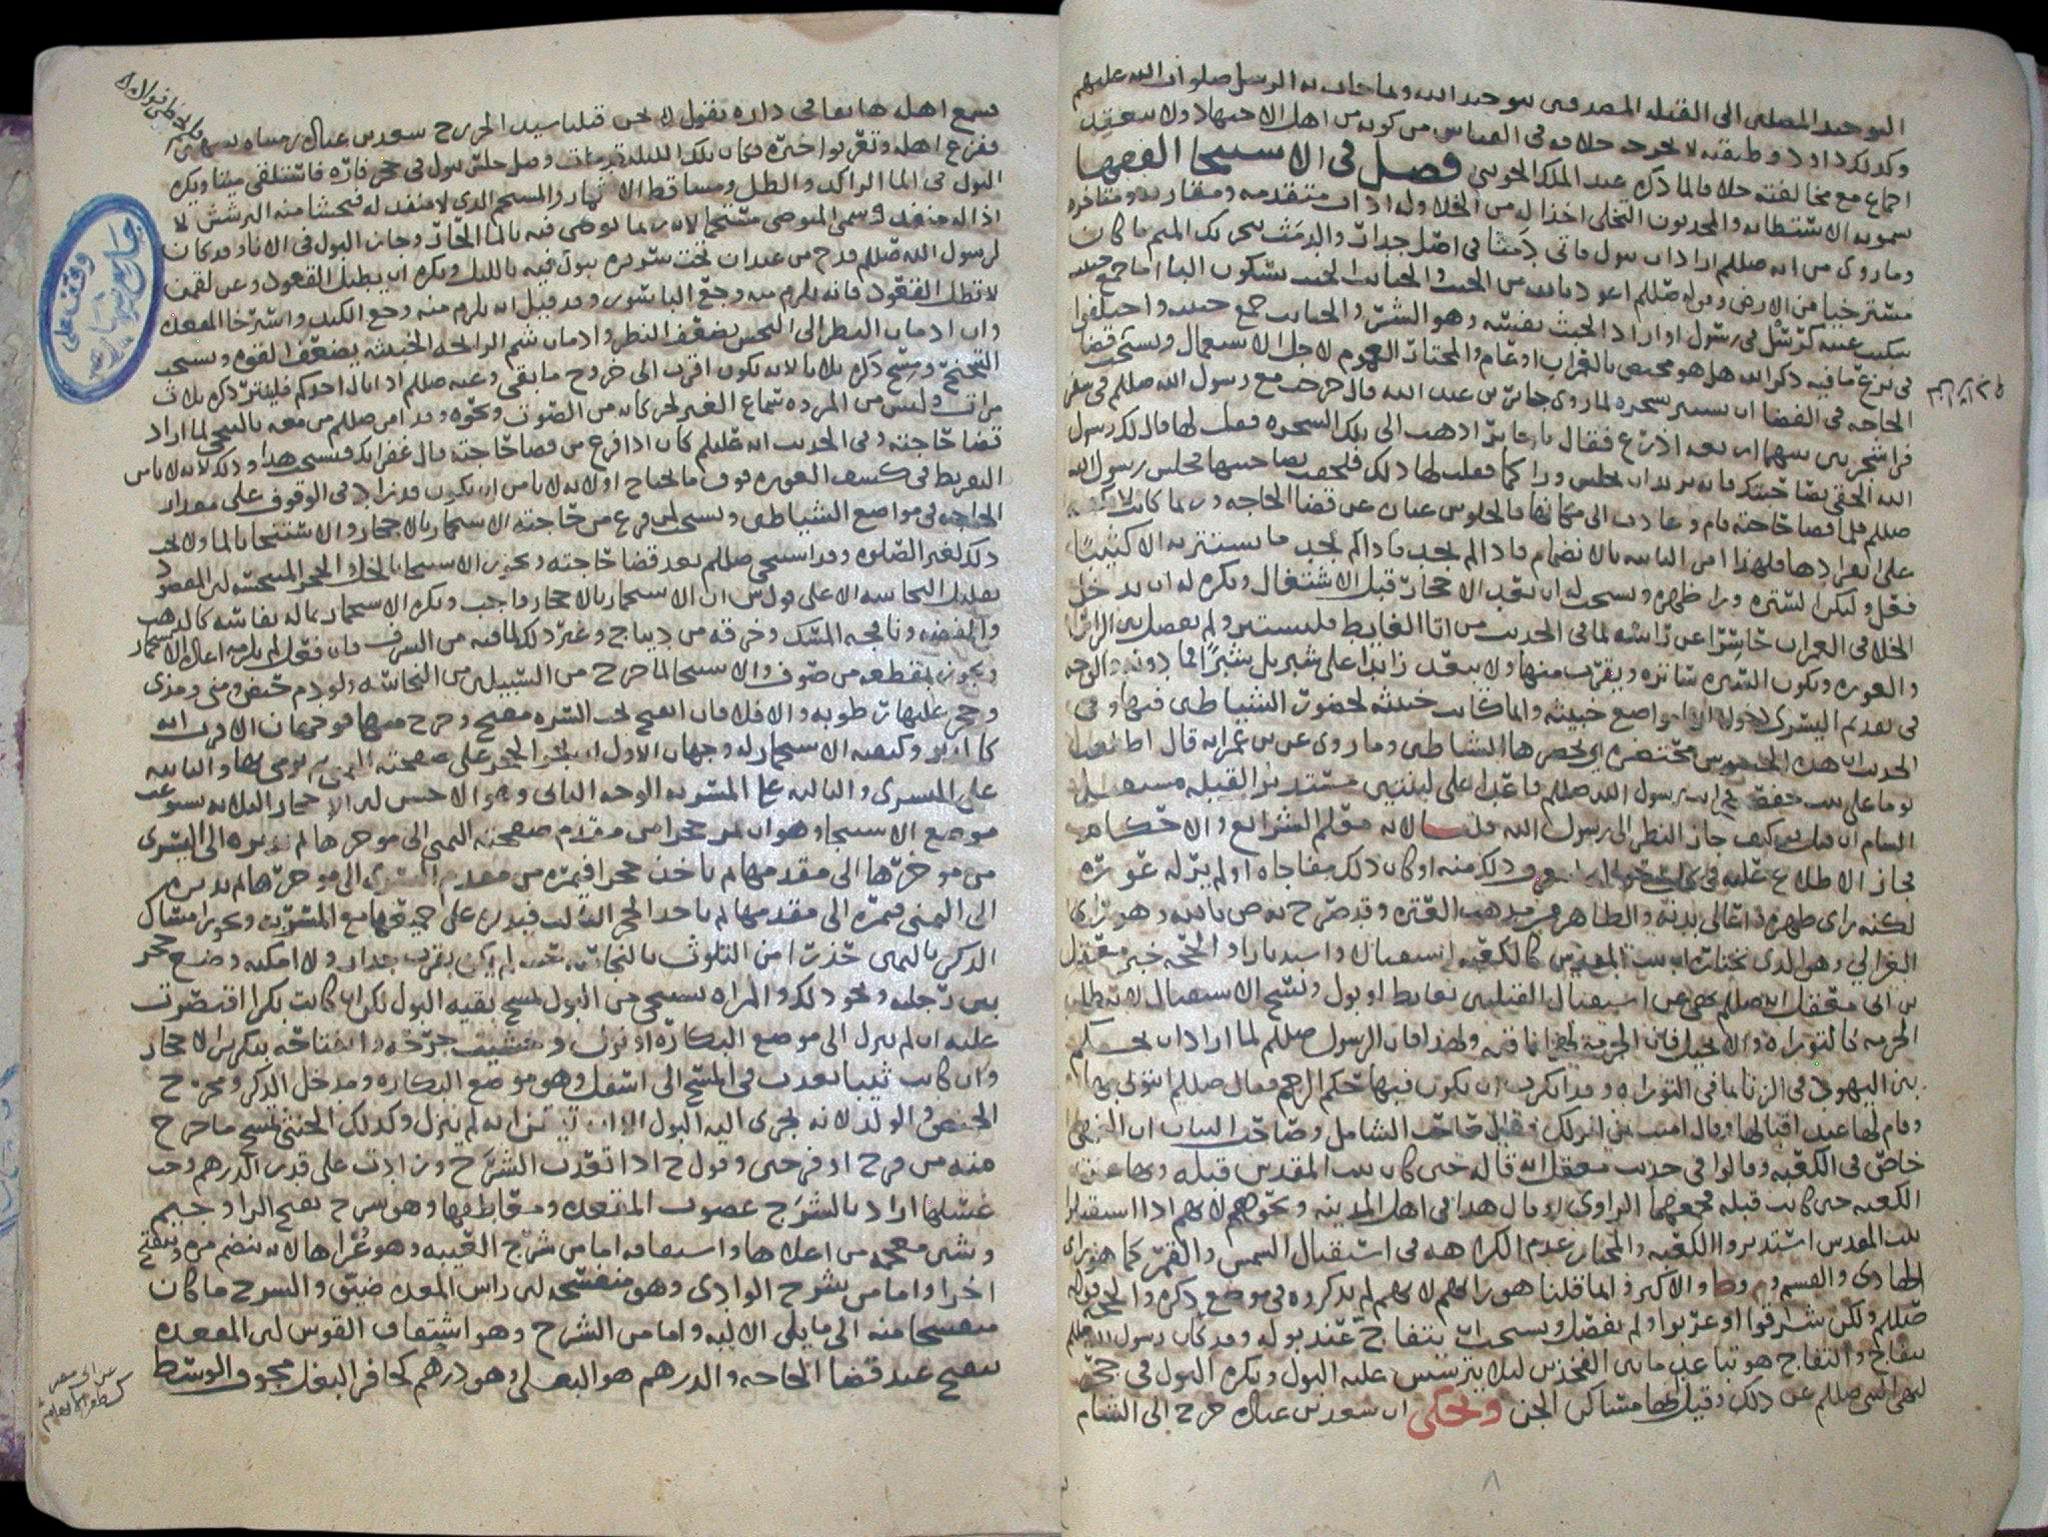 التوحيد المصلين الى القبلة المصدقين بتوحيد الله وبما جات به الرسل صلوات الله عليهم
وكذلك داود وطبقته لا يخرجه خلافه في القياس من كونه من اهل الاجتهاد ولا ينعقد
اجماع مع مخالفته خلافا لما ذكره عبد الملك الجويني فصل في الاستنجا الفقها
يسمونه الاستطابة والمحدثون التخلي اخذا له من الخلا وله اداب متقدمه ومقارنه ومتاخره
وما روي من انه صللم اراد ان يبول فاتى دمثا في اصل جدار والدمث بتحريك الميم ما كان
مسترخيا من الارض وقوله صللم اعوذ بالله من الخبث والخبائث الخبث بسكون البا اما جمع خبيث
سكنت عينه كرسل في رسل او اراد الخبث نفسه وهو الشر والخبائث جمع خبيثة واختلفوا
في نزع ما فيه ذكر الله هل هو مختص بالخراب او عام والمختار العموم لاجل الاستعمال ويستحب قضا
الحاجه في الفضا ان يستتر بشجره لما روى جابر بن عبد الله قال خرجت مع رسول الله صللم في سفر
فراى شجرتين بينهما اربعة اذرع فقال يا جابر اذهب الى تلك الشجره فقل لها قال لك رسول
الله الحقي بصاحبتك فانه يريد ان يجلس وراكما فقلت لها ذلك فلحقت بصاحبتها فجلس رسول الله
صللم فلما قضا حاجته قام وعادت الى مكانها
على انفرادها فلهذا امر النابيه بالانضمام فاذا لم يجد ما يستتر به الا كثيبا
فعل وليكن لستره ورا ظهره ويستحب له ان يعد الاحجار قبل الاشتغال ويكره له ان يدخل
الخلا في العمران حاسرا عن راسه لما في الحديث من اتا الغايط فليستتر ولم يفصل بين الراس
والعوره وتكون الستره ساتره ويقرب منها ولا يبعد زايدا على شبر بل شبرا فما دونه والوجه
في تقديم اليسرى لدخوله انها مواضع خبيثه وانما كانت خبيثه لحضور الشياطين فيها وفي
الحديث ان هذه الحشوش محتضره اي يحضرها الشياطين وما روي عن بن عمر انه قال اطلعت
يوما على بيت حفصه فرايت رسول الله صللم قاعدا على لبنتين مستدبر القبله مستقبل
الشام ان قيل كيف جاز النظر الى رسول الله قلنا لانه معلم الشرايع والاحكام
فجاز الاطلاع عليه او كان ذلك مفاجاه او لم ير له عوره
لكنه راى ظهره واعالي بدنه والظاهر من مذهب العتره وقد صرح به ص بالله وهو راي
الغزالي وهو الذي نختاره ان بيت المقدس كالكعبه استقبالا واستدبارا والحجه خبر معقل
بن ابي معقل انه صللم نهى عن استقبال القبلتين بغايط او بول ونسخ الاستقبال لا يبطل
الحرمه كالتوراه والانجيل فان الحرمة لهما ولهذا فان الرسول صللم لما اراد ان يحكم
بين اليهود في الزنا بما في التوراه وقد انكرت ان يكون فيها حكم الرجم فقال صللم ايتوني بها
وقام لها عند اقبالها وقال امنت بمن انزلك وقال صاحب الشامل وصاحب البيان ان النهي
خاص في الكعبه وقالوا في حديث معقل انه قاله حين كان بيت المقدس قبله ونها عن
الكعبه حين كانت قبله فجمعهما الراوي او قال هذا في اهل المدينه ونحوهم لانهم اذا استقبلوا
بيت المقدس استدبروا الكعبه والمختار عدم الكراهه في استقبال الشمس والقمر كما هو راي
الهادي والقسم و م وط والاكثر وانما قلنا هو رايهم لانهم لم يذكروه في موضع ذكره والحجه قوله
صللم ولكن شرقوا او غربوا ولم يفصل ويستحب ان يتفاج عند بوله وقد كان رسول الله صللم
يتفاج والتفاج هو تباعد ما بين الفخذين ليلا يترشش عليه البول ويكره البول في جحر
لنهي النبي صللم عن ذلك وقيل انها مساكن الجن ويحكى ان سعد بن عباده خرج الى الشام
سمع اهله هاتفا في داره يقول نحن قتلنا سيد الخزرج سعد بن عباده رميناه بسهمين
ففزع اهله وتعرفوا خبره فكان تلك الليله قد مات وقيل جلس يبول في جحر فاره فاستلقى ميتا ويكره
البول في الما الراكد والظل ومساقط الاثمار والمستحم الذي لا منفذ له فيخشا منه الترشش لا
اذا له منفذ وسمي المتوضى مستحما لانه ربما توضى فيه بالما الحار وجاز البول في الانا وقد كان
لرسول الله صللم قدح من عيدان تحت سريره يبول فيه بالليل ويكره ان يطيل القعود وعن لقمن
لا تطل القعود فانه يلزم منه وجع الباسور وقد قيل انه يلزم منه وجع الكبد واسترخا المقعده
وان ادمان النظر الى النجس يضعف النظر وادمان شم الرايحه الخبيثه يضعف القوه ويستحب
التنحنح ومسح ذكره ثلاثا لانه يكون اقرب الى خروج ما بقي وعنه صللم اذا بال احدكم فلينتر ذكره ثلاث
مرات وليس من المروه سماع الغير لحركاته من الصوت ونحوه وقد امر صللم من معه بالتنحي لما اراد
قضا حاجته وفي الحديث انه عليلم كان اذا فرغ من قضا حاجته قال غفرانك فيستحب هذا وذلك لانه لا يامن
التفريط في كشف العوره فوق ما يحتاج او لانه لا يامن ان يكون قد زاد في الوقوف على مقدار
الحاجه في مواضع الشياطين ويستحب لمن فرغ من حاجته الاستجمار بالاحجار والاستنجا بالما ولا يجب
ذلك لغير الصلوة وقد استنجى صللم بعد قضا حاجته ويجوز الاستنجا
تقليل النجاسه الا على قول ش ان الاستجمار بالاحجار واجب ويكره الاستجمار بما له نفاسه كالذهب
والفضه ونافجه المسك وخرقه من ديباج وغير ذلك لما فيه من السرف فان فعل لم يلزمه اعاده الاستجمار
ويجوز بقطعه من صوف والاستنجا لما خرج من السبيلين من النجاسه ولو دم حيض ومني ومذي
وحجر عليها رطوبه والا فلا فان انفتح تحت السره مفتح وخرج منها فوجهان الاقرب انه
كالدبر وكيفيه الاستجمار له وجهان الاول ان يمر الحجر على صفحته اليمنى ثم يرمي بها والثانيه
على اليسرى والثالثه على المسربه الوجه الثاني وهو الاحسن لئن الاحجار الثلاثه تستوعب
موضع الاستنجا وهو ان يمر حجرا من مقدم صفحته اليمنى الى موخرها ثم يديره الى اليسرى
من موخرها الى مقدمها ثم ياخذ حجرا فيمره من مقدم اليسرى الى موخرها ثم يديره
الى اليمنى فيمره الى مقدمها ثم ياخذ الحجر الثالث فيديره على جميعها مع المسربه ويكره امساك
الذكر باليمين حذرا من التلوث بالنجاسه حيث لم يكن بقرب جدار ولا امكنه وضع حجر
بين رجليه ونحو ذلك والمراه تستنجي من البول لمسح بقيه البول لكن ان كانت بكرا اقتصرت
عليه ان لم ينزل الى موضع البكاره اذ نزوله وخشيت جرحه وانفتاحه بتكرير الاحجار
وان كانت ثيبا تعدت في المسح الى اسفل وهو موضع البكاره ومدخل الذكر ومخرج
الحيض والولد لانه يجري اليه البول الا ان تيقن انه لم ينزل وكذلك الخنثى تمسح ما خرج
منه من فرج او فرجين وقول ح اذا تعدت الشرج وزادت على قدر الدرهم وجب
غسلها اراد بالشرج غضون المقعده ومقاطفها وهو شرج بفتح الرا وجيم
وشين معجمه من اعلاها واستقاقه اما من شرج العيبه وهو عراها لانه ينضم مره وينفتح
اخرا واما من شرج الوادي وهو منفسحه لئن راس المعده ضيق والشرج ما كان
منفسحا منه الى ما يلي الاليه واما من الشرج وهو انشقاق القوس لئن المقعده
تنفتح عند قضا الحاجه والدرهم هو البغلي وهو درهم كحافر البغل مجوف الوسط
وقف على